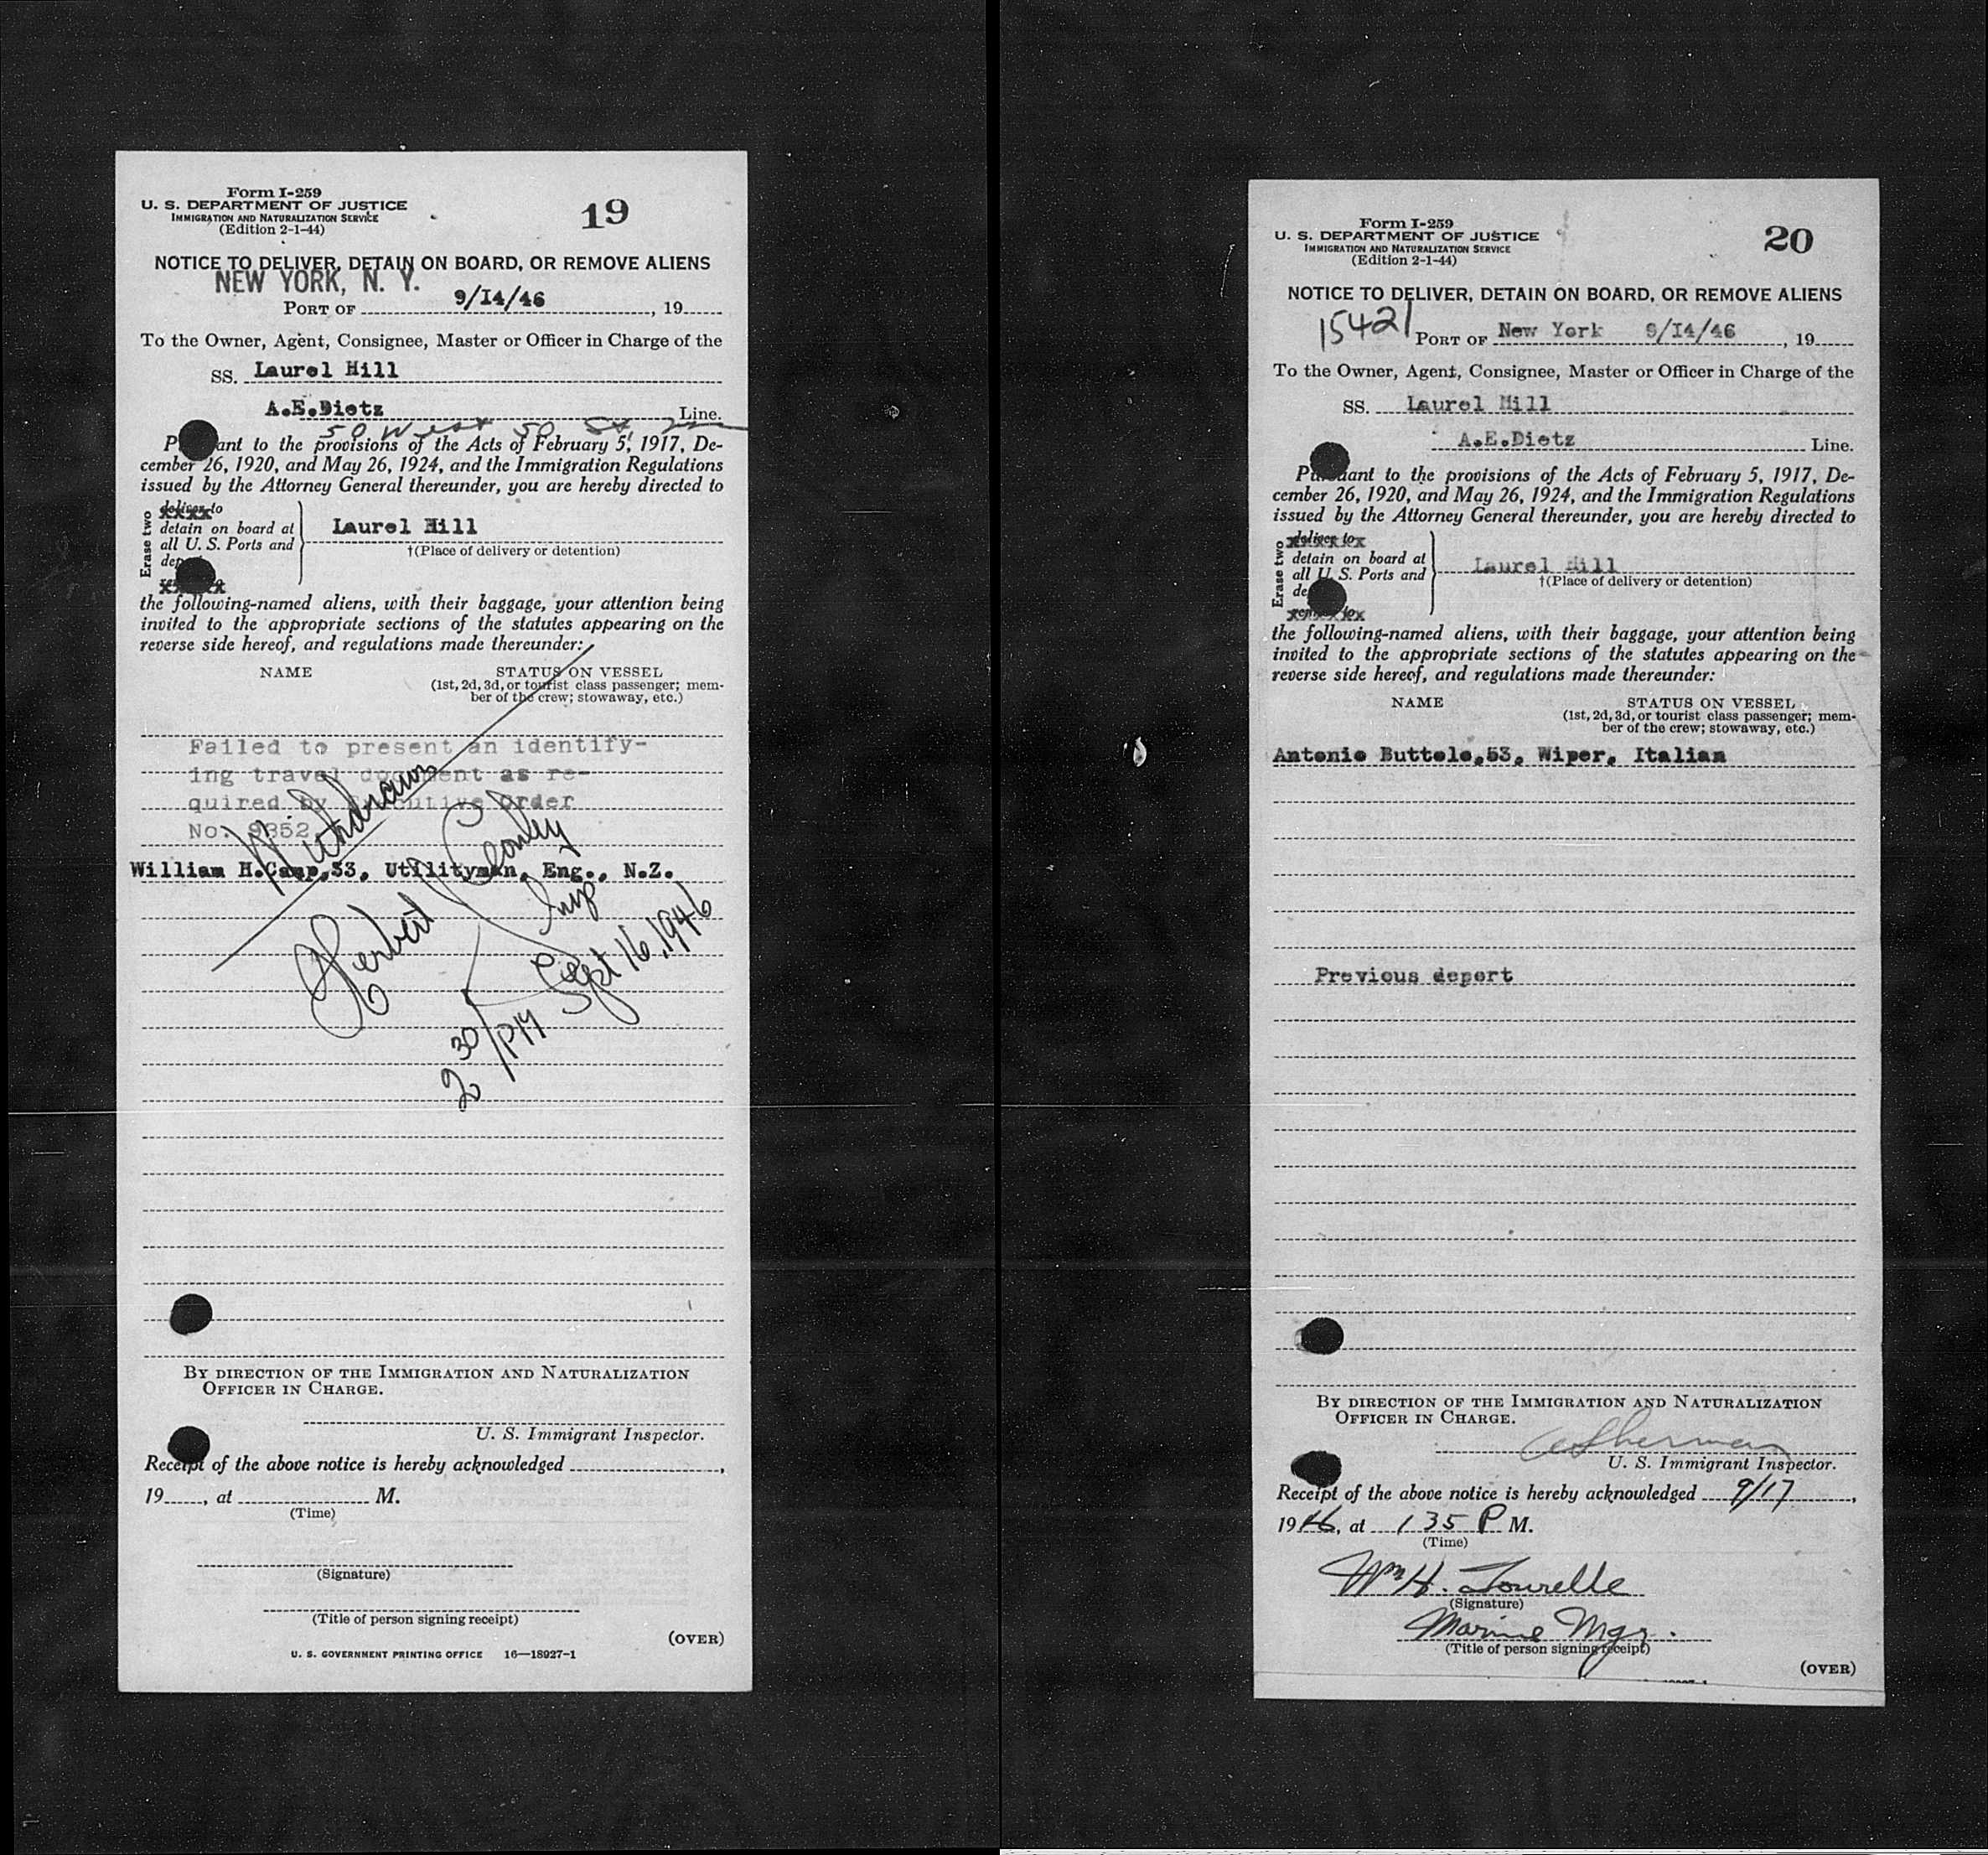 Form I-259
U. S. DEPARTMENT OF JUSTICE
IMMIGRATION AND NATURALIZATION SERVICE
(Edition 2-1-44)
19
NOTICE TO DELIVER, DETAIN ON BOARD, OR REMOVE ALIENS
NEW YORK, N. Y.
PORT OF 9/14/46, 19
To the Owner, Agent, Consignee, Master or Officer in Charge of the
SS. Laurel Hill
A.E.Dietz Line.
50 West 50 St.
P ant to the provisions of the Acts of February 5, 1917, De-
cember 26, 1920, and May 26, 1924, and the Immigration Regulations
issued by the Attorney General thereunder, you are hereby directed to
Erase two
deliver to
detain on board at
all U. S. Ports and
Laurel Hill
†(Place of delivery or detention)
the following-named aliens, with their baggage, your attention being
invited to the appropriate sections of the statutes appearing on the
reverse side hereof, and regulations made thereunder:
NAME STATUS ON VESSEL
(1st, 2d, 3d, or tourist class passenger; mem-
ber of the crew; stowaway, etc.)
Failed to present an identify-
ing travel document as re-
quired by Executive Order
No. 9352
Withdrawn
William H.Camp,53, Utilityman, Eng., N.Z.
Herbert Conley
Insp
Sept 16, 1946
2 30/PM
BY DIRECTION OF THE IMMIGRATION AND NATURALIZATION
OFFICER IN CHARGE.
U. S. Immigrant Inspector.
Receipt of the above notice is hereby acknowledged ,
19 , at M.
(Time)
(Signature)
(Title of person signing receipt)
(OVER)
U. S. GOVERNMENT PRINTING OFFICE 16—18927-1
Form I-259
U. S. DEPARTMENT OF JUSTICE
IMMIGRATION AND NATURALIZATION SERVICE
(Edition 2-1-44)
20
NOTICE TO DELIVER, DETAIN ON BOARD, OR REMOVE ALIENS
15421
PORT OF New York 9/14/46, 19
To the Owner, Agent, Consignee, Master or Officer in Charge of the
SS. Laurel Hill
A.E.Dietz Line.
Pursuant to the provisions of the Acts of February 5, 1917, De-
cember 26, 1920, and May 26, 1924, and the Immigration Regulations
issued by the Attorney General thereunder, you are hereby directed to
Erase two
deliver to
detain on board at
all U. S. Ports and
remove to
Laurel Hill
†(Place of delivery or detention)
the following-named aliens, with their baggage, your attention being
invited to the appropriate sections of the statutes appearing on the
reverse side hereof, and regulations made thereunder:
NAME STATUS ON VESSEL
(1st, 2d, 3d, or tourist class passenger; mem-
ber of the crew; stowaway, etc.)
Antonio Buttolo,53, Wiper, Italian
Previous deport
BY DIRECTION OF THE IMMIGRATION AND NATURALIZATION
OFFICER IN CHARGE.
Sherman
U. S. Immigrant Inspector.
Receipt of the above notice is hereby acknowledged 9/17,
1946, at 1 35 P M.
(Time)
Wm H. Lourelle
(Signature)
Marine Mgr.
(Title of person signing receipt)
(OVER)